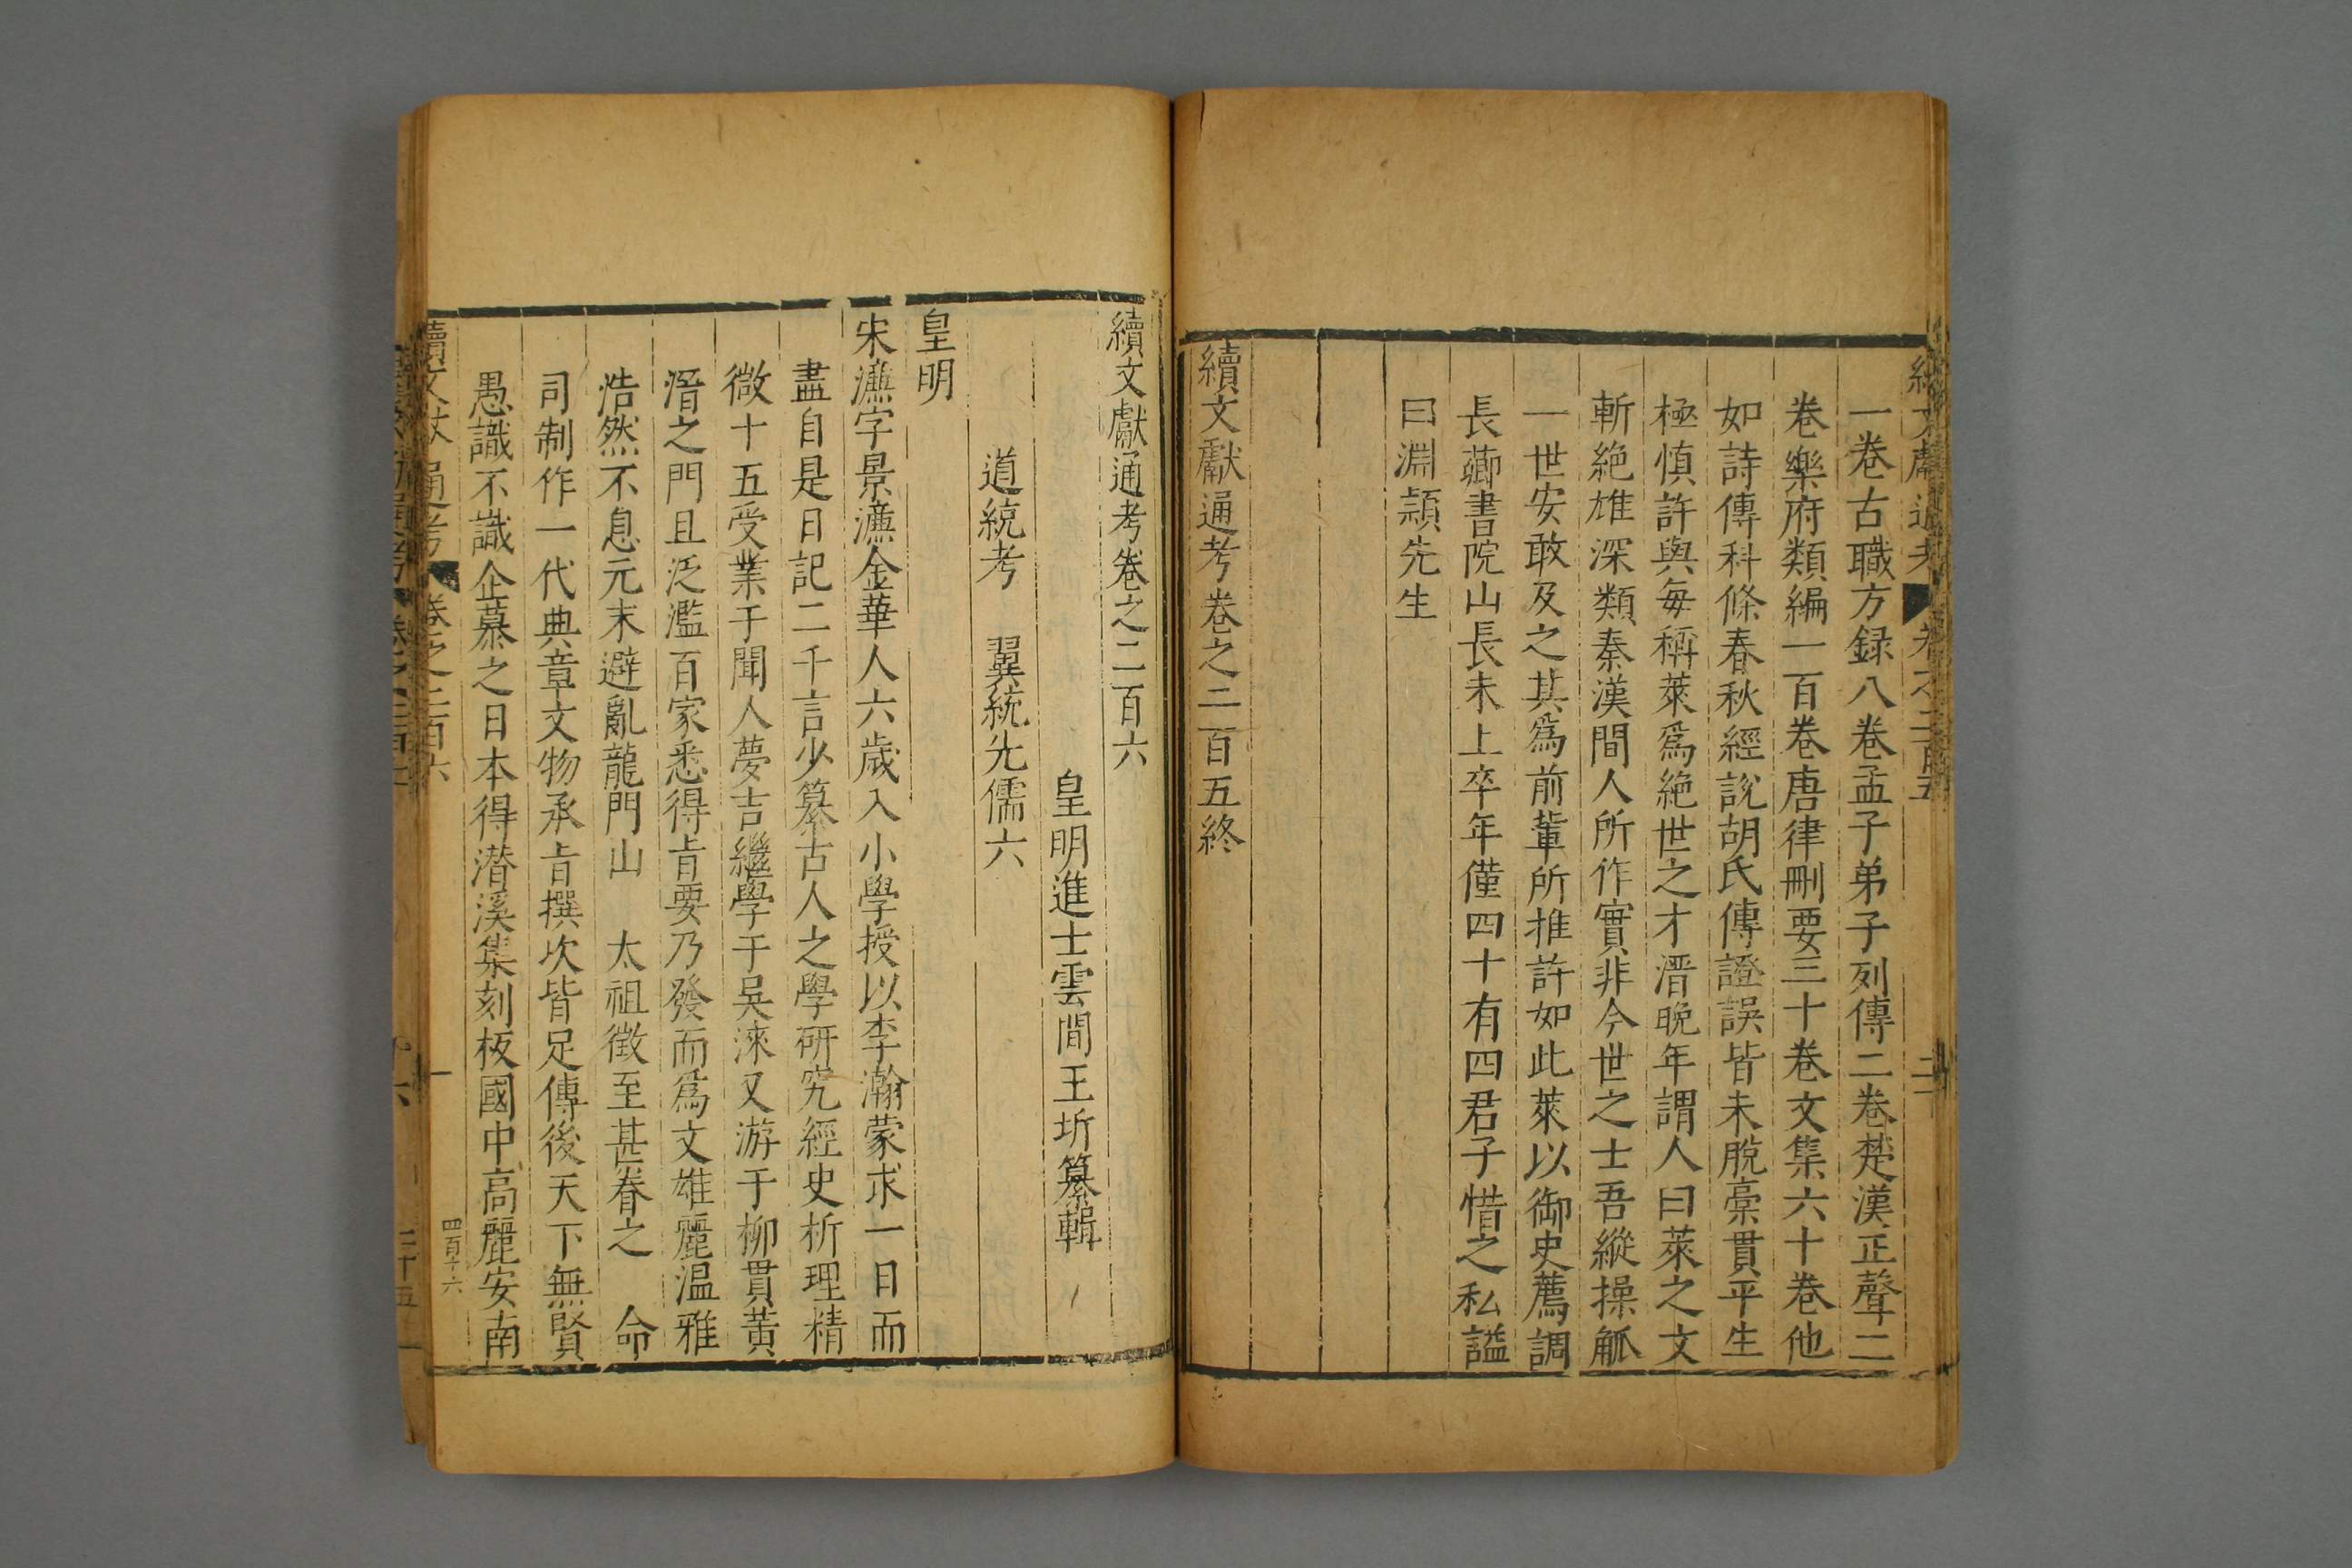 一卷古職方録八卷孟子弟子列傳二卷楚漢正聲二
卷樂府類編一百卷唐律刪要三十卷文集六十卷他
如詩傳科條春秋經說胡氏傳證誤皆未脫槀貫平生
極慎許與每稱萊爲絶世之才溍晩年謂人曰萊之文
斬絶雄深類秦漢間人所作實非今世之士吾縱操觚
一世安敢及之其爲前輩所推許如此萊以御史薦調
長薌書院山長未上卒年僅四十有四君子惜之私謚
曰淵頴先生
續文獻通考卷之二百五終
續文獻通考卷之二百六
皇明進士雲間王圻纂輯
道統考 翼統先儒六
皇明
宋濂字景濂金華人六歲入小學授以李瀚蒙求一日而
盡自是日記二千言少纂古人之學研究經史析理精
微十五受業于聞人夢吉繼學于吳淶又游于柳貫黃
溍之門且泛濫百家悉得旨要乃發而爲文雄麗温雅
浩然不息元末避亂龍門山 太祖徵至甚眷之 命
司制作一代典章文物承旨撰次皆足傳後天下無賢
愚識不識企慕之日本得潛溪集刻板國中高麗安南
續文獻通考 卷之二百六 一
四百十六